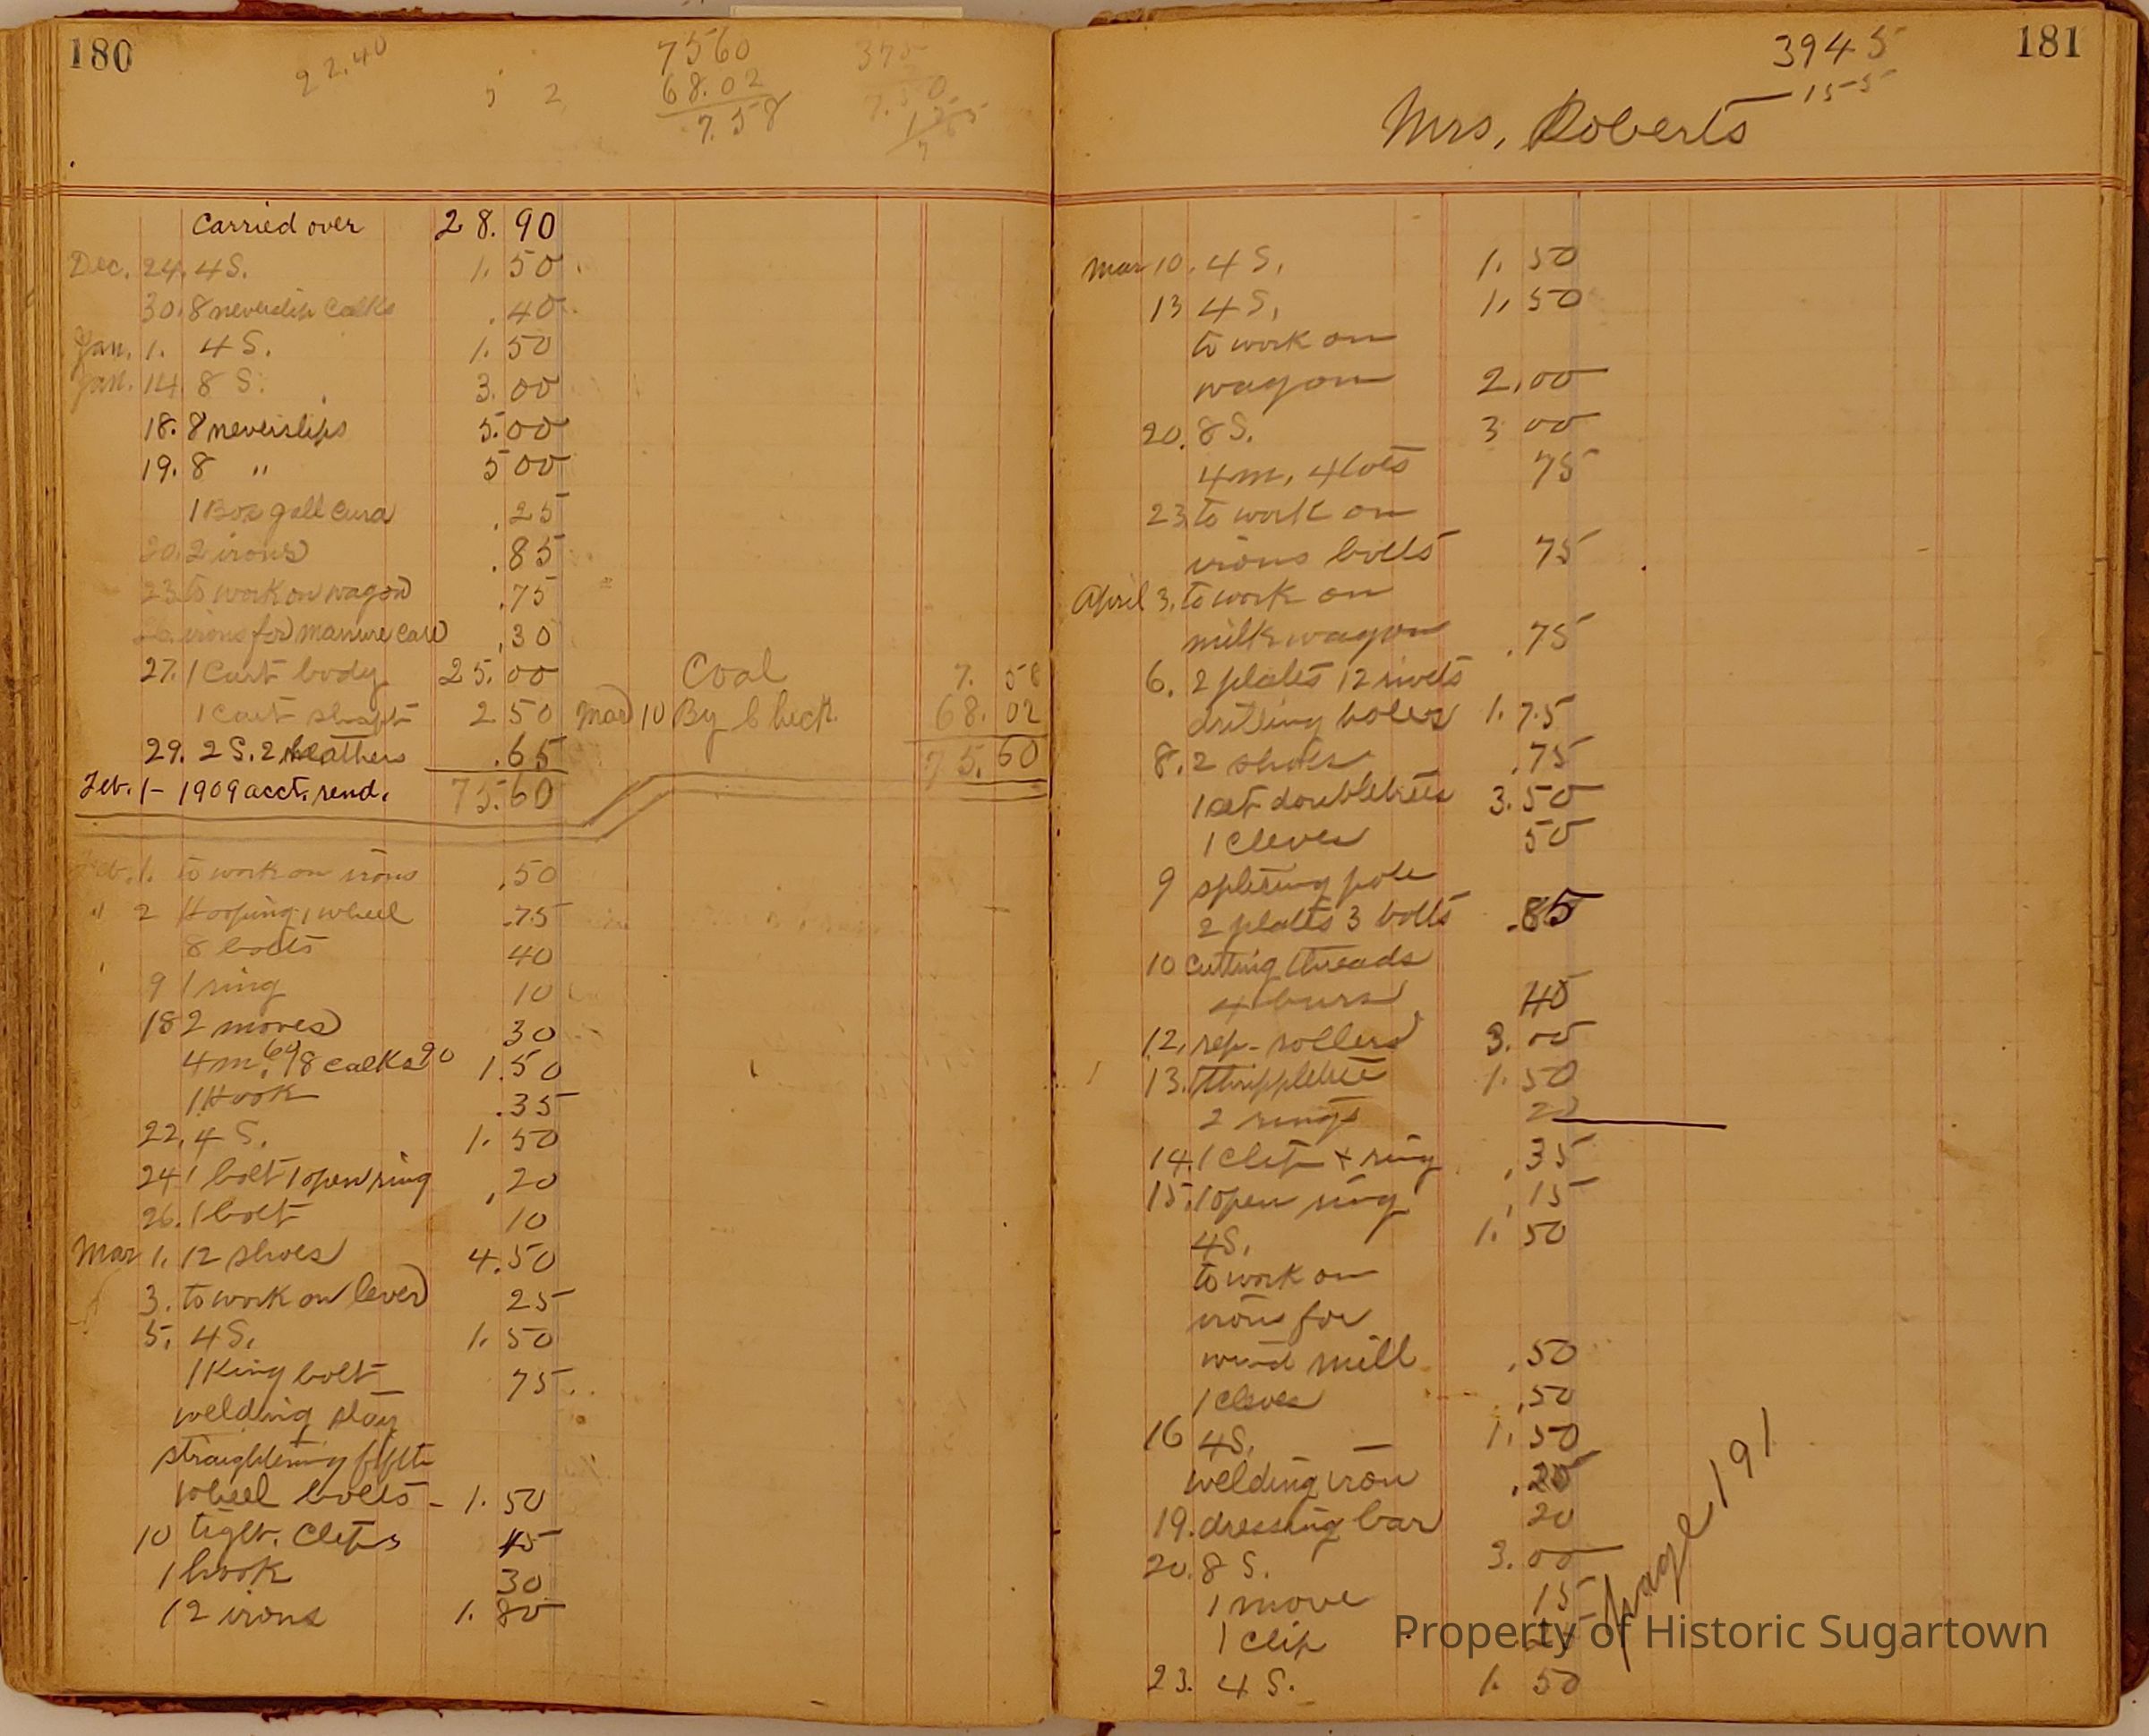 180
22.40
5 2
7560
68.02
7.58
375
Carried over 28.90
Dec. 24. 4 S. 1.50
30. 8 neverslip Calks .40
Jan. 1. 4 S. 1.50
Jan. 14. 8 S. 3.00
18. 8 neverslips 5.00
19. 8 " 5 00
1 Box gall cura .25
20. 2 irons .85
23 to work on wagon .75
irons for manure cart .30
27. 1 Cart body 25.00 Coal 7.58
1 cart shaft 2 50 Mar 10 By Check 68.02
29. 2 S. 2 leathers .65 75.60
Feb. 1 - 1909 acct. rend. 75.60
Feb. 1. to work on irons .50
" 2 Hooping 1 wheel .75
8 bolts 40
9 1 ring 10
18 2 moves 30
4 m. 60 8 calks 90 1.50
1 Hook .35
22. 4 S. 1.50
24 1 bolt 1 open ring .20
26. 1 bolt 10
Mar 1. 12 shoes 4.50
3. to work on lever 25
5. 4 S. 1.50
1 King bolt 75
welding stay
straightening fifth
wheel bolts - 1.50
10 tight. Clips 45
1 hook 30
12 irons 1.80
181
3945
155
Mrs. Roberts
Mar 10. 4 S. 1.50
13 4 S. 1.50
to work on
wagon 2.00
20. 8 S. 3 00
4 m. 4 toes 75
23 to work on
irons bolts 75
April 3. to work on
milk wagon .75
6. 2 plates 12 rivets
drilling holes 1.75
8. 2 shoes .75
1 set doubletrees 3.50
1 Clever 50
9 spliting pole
2 plates 3 bolts .85
10 cutting threads
4 burs 40
12. rep. rollers 3.00
13. thrippletree 1.50
2 rings 20
14. 1 clip + ring .35
15. 1 open ring .15
4 S. 1.50
to work on
irons for
wind mill .50
1 clever .50
16 4 S. 1.50
welding iron .25
19. dressing bar 20
20. 8 S. 3.00
1 move 15
1 clip
23. 4 S. 1.50
page 191
Property of Historic Sugartown